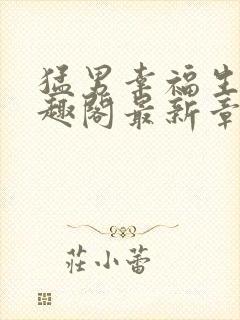 猛男幸福生
趣阁最新章
莊小蕾